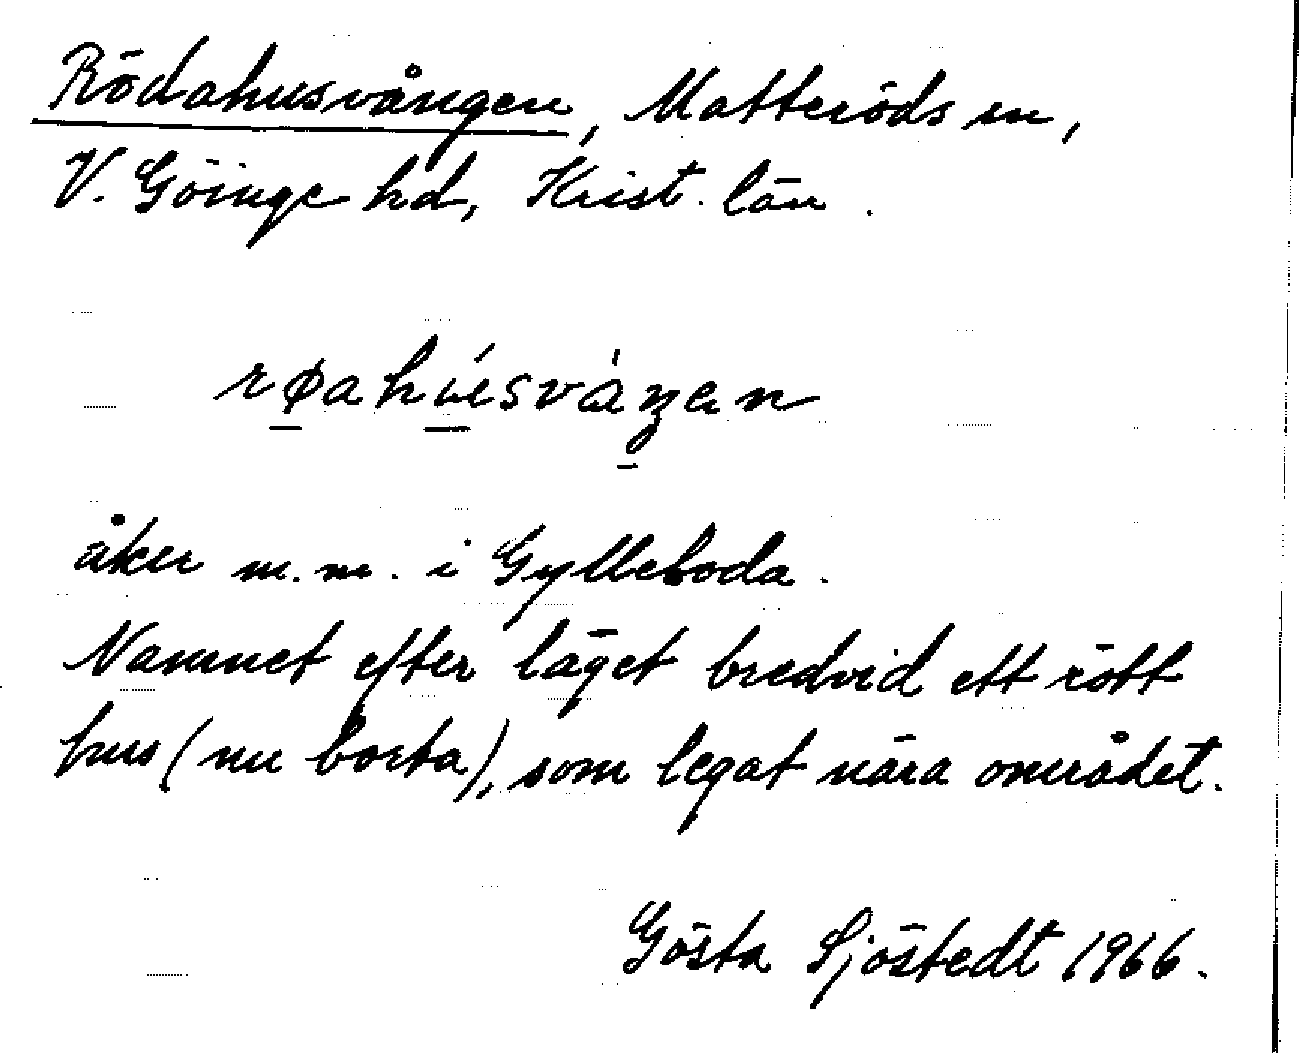 Rödahusvången, Matteröds sn,
V. Göinge hd, Krist. län.
røahu̲ ́sváŋen
åker m.m. i Gylleboda.
Namnet efter läget bredvid ett rött
hus (nu borta), som legat nära området.
Gösta Sjöstedt 1966.